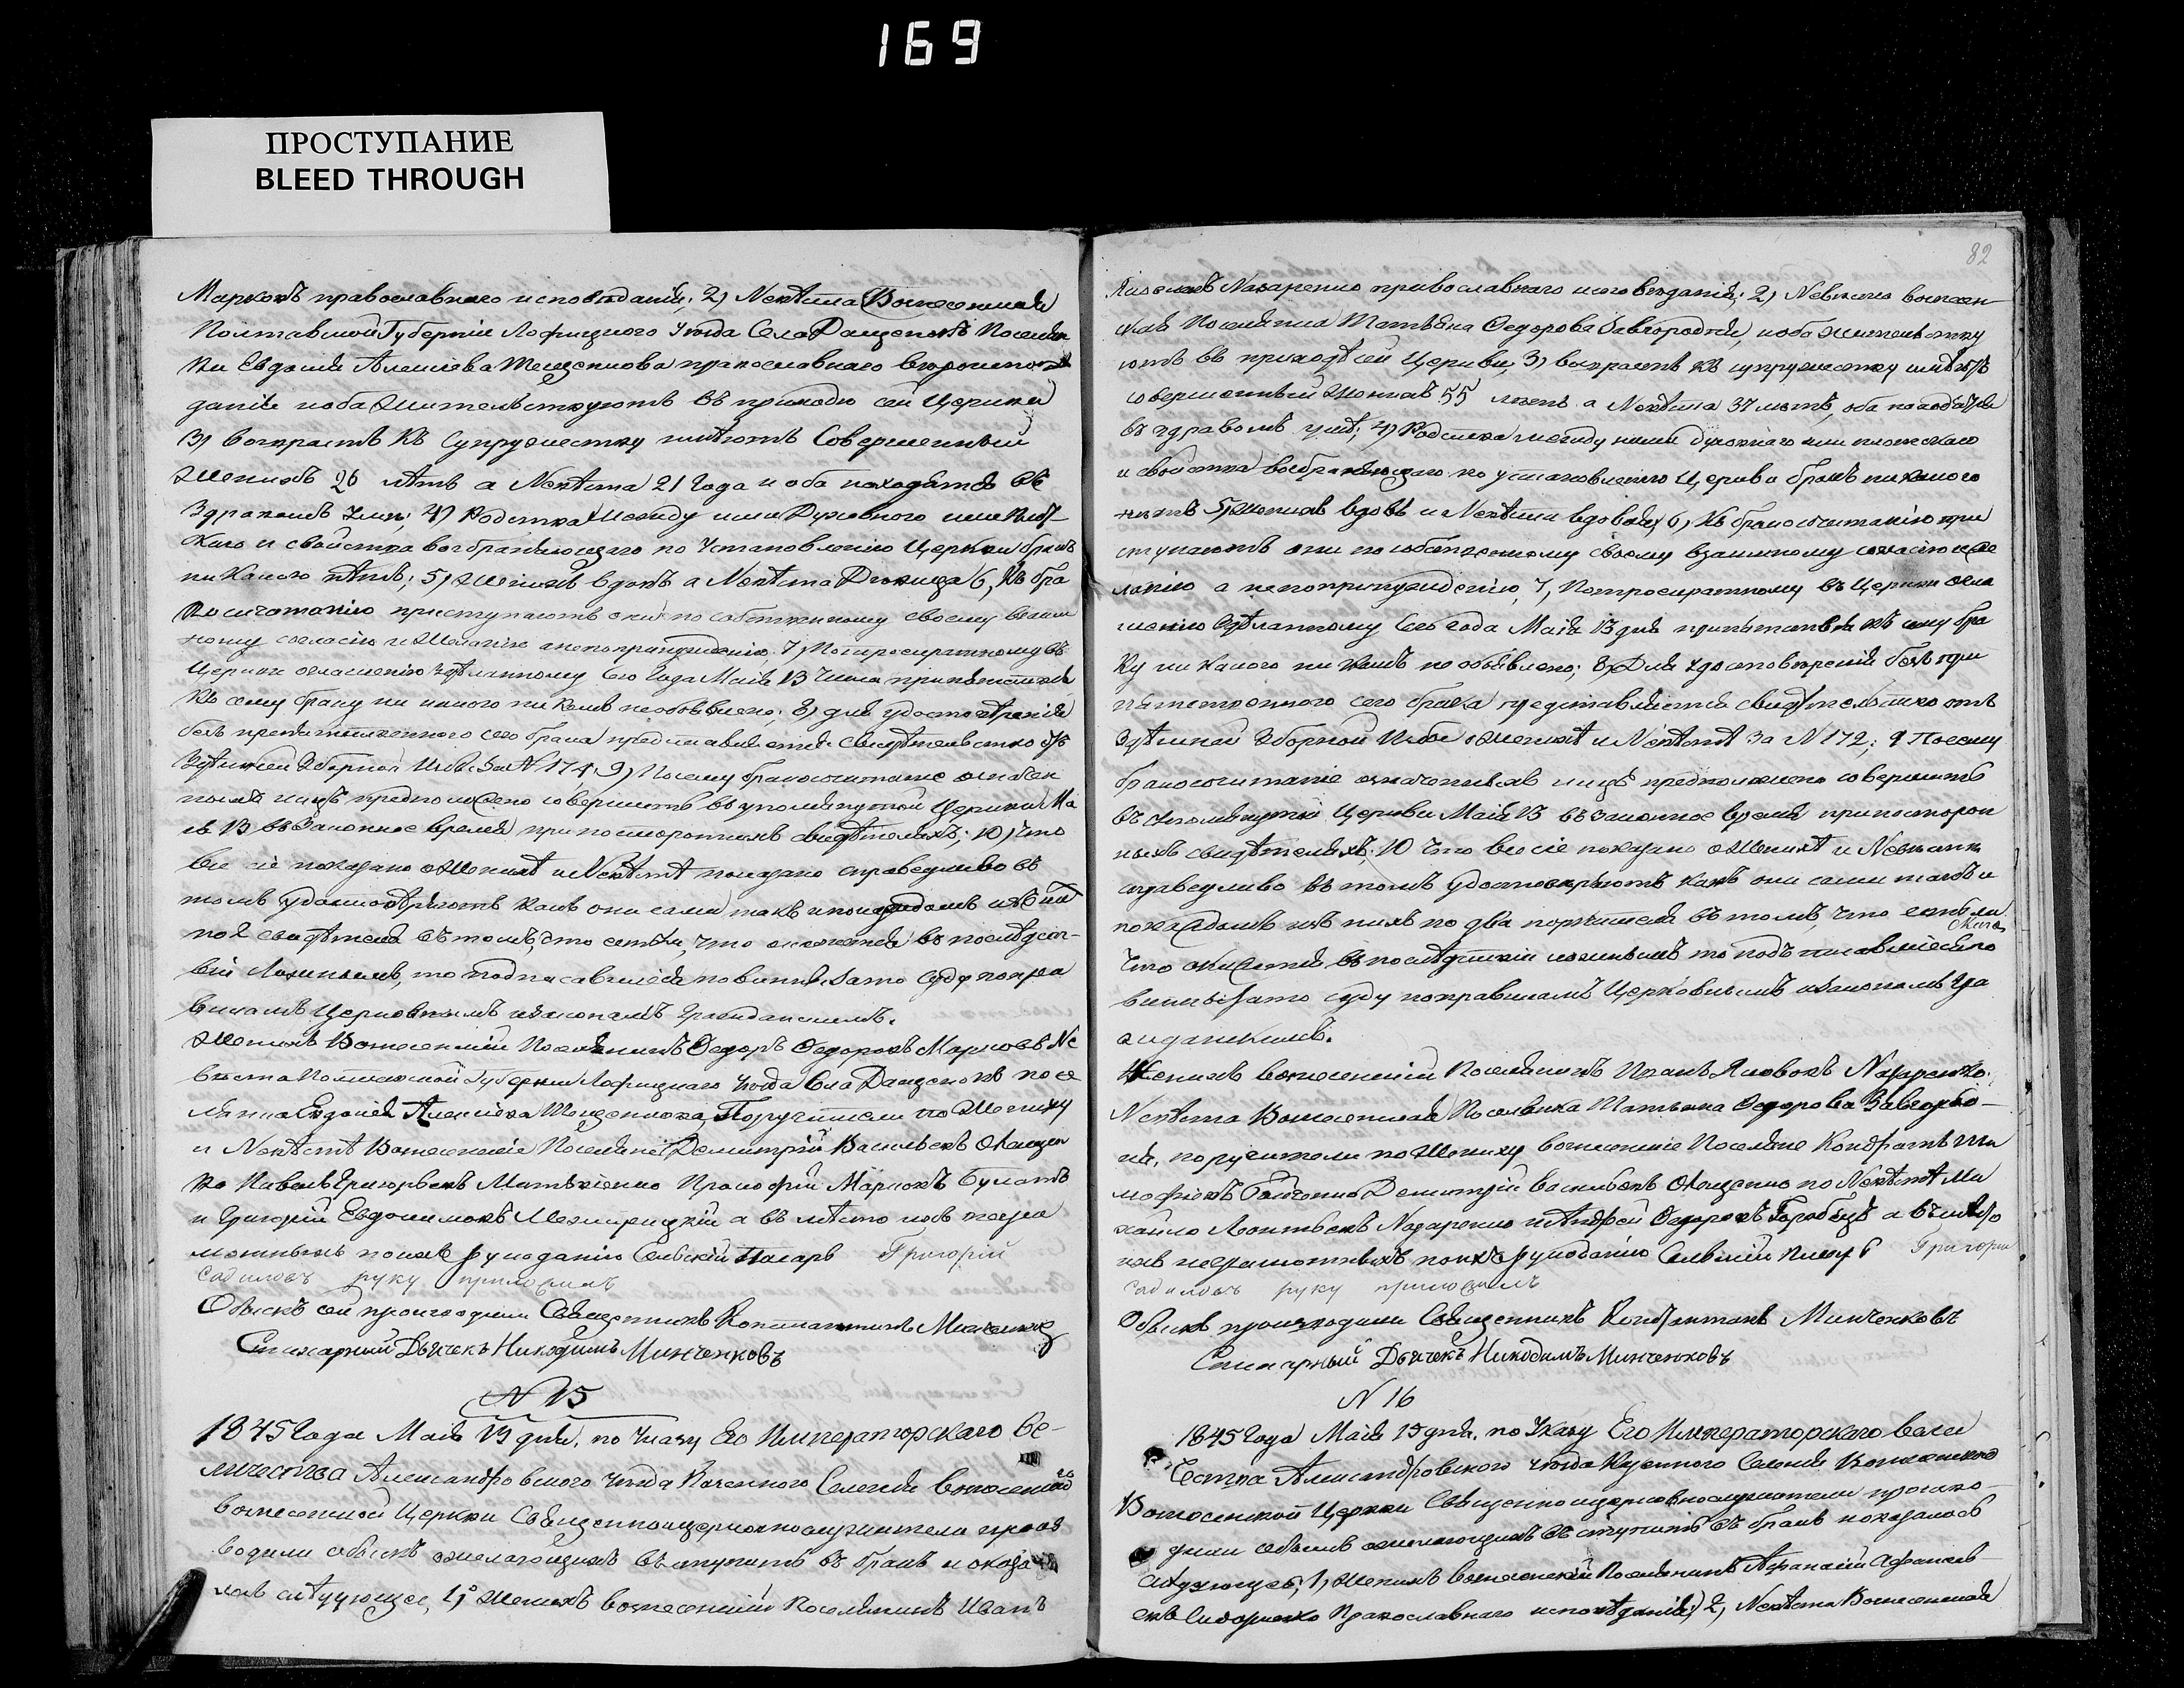 169
ПРОСТУПАНИЕ
BLEED THROUGH
Марковъ православнаго исповѣданія; 2) Невѣста Вознесенская
Полтавской Губерніи Лофицкого Уѣзда Села Даценокъ Поселян
ка Евдокія Алексіева православнаго
данія и оба жительствуютъ въ приходѣ сей Церкви
3) возрастъ къ Супружеству имѣютъ Совершенный
Женихъ 26 лѣтъ а Невѣста 21 Года и оба находятся въ
Здравомъ умѣ; 4) Родства Между ими Духовного или Плот-
скаго и свойства возбраняющаго по Установленію Церкви бракъ
никакого нѣтъ; 5) Женихъ вдовъ а Невѣста Девица 6, Къ бра
косочетанію приступаютъ они по собственному своему взаим
ному согласію и Желанію а не по принужденію, 7) По троекратному въ
Церкви оглашенію здѣланному Сего Года Маія 13 Числа препятствія
Къ сему браку ни какого ни кемъ не объявлено; 8) для удостовѣренія
безъ препятственного сего брака представляется свидѣтельство отъ
Здѣшней Зборной Избы За N 174; 9) Посему бракосочетаніе означен
ныхъ лицъ предположено совершить въ упомянутой Церкви Ма
ія 13 въ Законное время при постороннихъ свидѣтеляхъ; 10) Что
все сіе показано о Женихѣ и Невѣстѣ показано справедливо въ
томъ удостовѣряютъ какъ они сами такъ и по
по 2 свидѣтеля въ томъ, что естьли, что окажется въ послѣдст-
віи Ложнымъ, то подписавшіеся повинны за то Суду по пра
виламъ Церковнымъ и Законамъ Гражданскимъ.
Женихъ Вознесенскій Поселянинъ Федоръ Федоровъ Марковъ Не
вѣста Полтавской Губерніи Лофицкаго Уѣзда Села Даценокъ посе
лянка Евдокія Алексіева Поручители по Жениху
и Невѣстѣ Вознесенскіе Поселяне Демитрій Васильевъ Онищен
ко Павелъ Григорьевъ Матвіенко Прокофій Марковъ
и Григорій Евдокимовъ Межирицкій а въ мѣсто ихъ негра
мотныхъ по ихъ рукоданію Сельскій Писарь Григорій
Садиловъ руку приложилъ
Обыскъ сей производили Священникъ Константинъ Минченковъ
Пономарный Дьячекъ Никодимъ Минченковъ
N 15
1845 Года Маія 13 дня. по Указу Его Императорскаго Ве-
личества Александровского Уѣзда Казенного Селенія Вознесенского
Вознесенской Церкви Священноицерковнослужители произ
водили обыскъ о желающихъ вступить въ бракъ и оказа
лось слѣдующее, 1) Женихъ вознесенскій Поселянинъ Иванъ
82
Яковлевъ Назаренко православнаго исповѣданія; 2) Невѣста вознесен-
ская Поселянка Татьяна Федорова Завгородняя, и оба жительству
ютъ въ приходѣ сей Церкви, 3) возрастъ къ супружеству имѣютъ
совершенный Женихъ 55 лѣтъ а Невѣста 37 лѣтъ, оба находятся
въ здравомъ умѣ; 4) Родства между ними духовнаго или плотскаго
и свойства возбраняющаго по установленію Церкви бракъ никакого
нѣтъ 5) Женихъ вдовъ и Невѣста вдовая; 6) Къ бракосочетанію при
ступаютъ они по собственному своему взаимному согласію и же
ланію а не по принужденію, 7, По троекратному въ Церкви огла
шенію здѣланному Сего года Маія 13 дня препятствія къ сему бра
ку ни какого ни кемъ не объявлено; 8) Для удостовѣренія безъ пре
пятственного сего брака представляется свидѣтельство отъ
Здѣшней Зборной Избы о Женихѣ и Невѣстѣ За N 172; 9 Посему
бракосочетаніе означенныхъ лицъ предположено совершить
въ упомянутой Церкви Маія 13 въ законное время при посторон
ныхъ свидѣтеляхъ; 10 Что все сіе показано о Женихѣ и Невѣстѣ
справедливо въ томъ удостовѣряютъ какъ они сами такъ и
по каждомъ изъ нихъ по два поручителя въ томъ, что естьли
что окажется въ послѣдствіи ложнымъ то подписавшіеся по
винны за то суду по правиламъ Церковнымъ и Законамъ Гра
жданскимъ.
Женихъ вознесенскій Поселянинъ Иванъ Яковлевъ Назаренко.
Невѣста Вознесенская Поселянка Татьяна Федорова Завгород-
няя, поручители по Жениху вознесенскіе Поселяне Кондратъ Ти
мофіевъ Демитрій Васильевъ Онищенко по Невѣстѣ Ми
хайло Леонтьевъ Назаренко и Андрей Федоровъ Горобецъ а въ мѣсто
ихъ неграмотныхъ по ихъ рукоданію Сельскій Писарь Григорій
Садиловъ руку приложилъ
Обыскъ производили Священникъ Константинъ Минченковъ
Дьячекъ Никодимъ Минченковъ
N 16
1845 Года Маія 13 дня. по Указу Его Императорского Вели
чества Александровского Уѣзда Казенного Селенія Вознесенского
Вознесенской Церкви Священноицерковнослужители произво-
дили обыскъ о желающихъ вступить въ бракъ и оказалось
слѣдующее; 1, Женихъ вознесенскій Поселянинъ Афанасій Афанась-
евъ Сидоренко Православнаго исповѣданія; 2, Невѣста Вознесенская